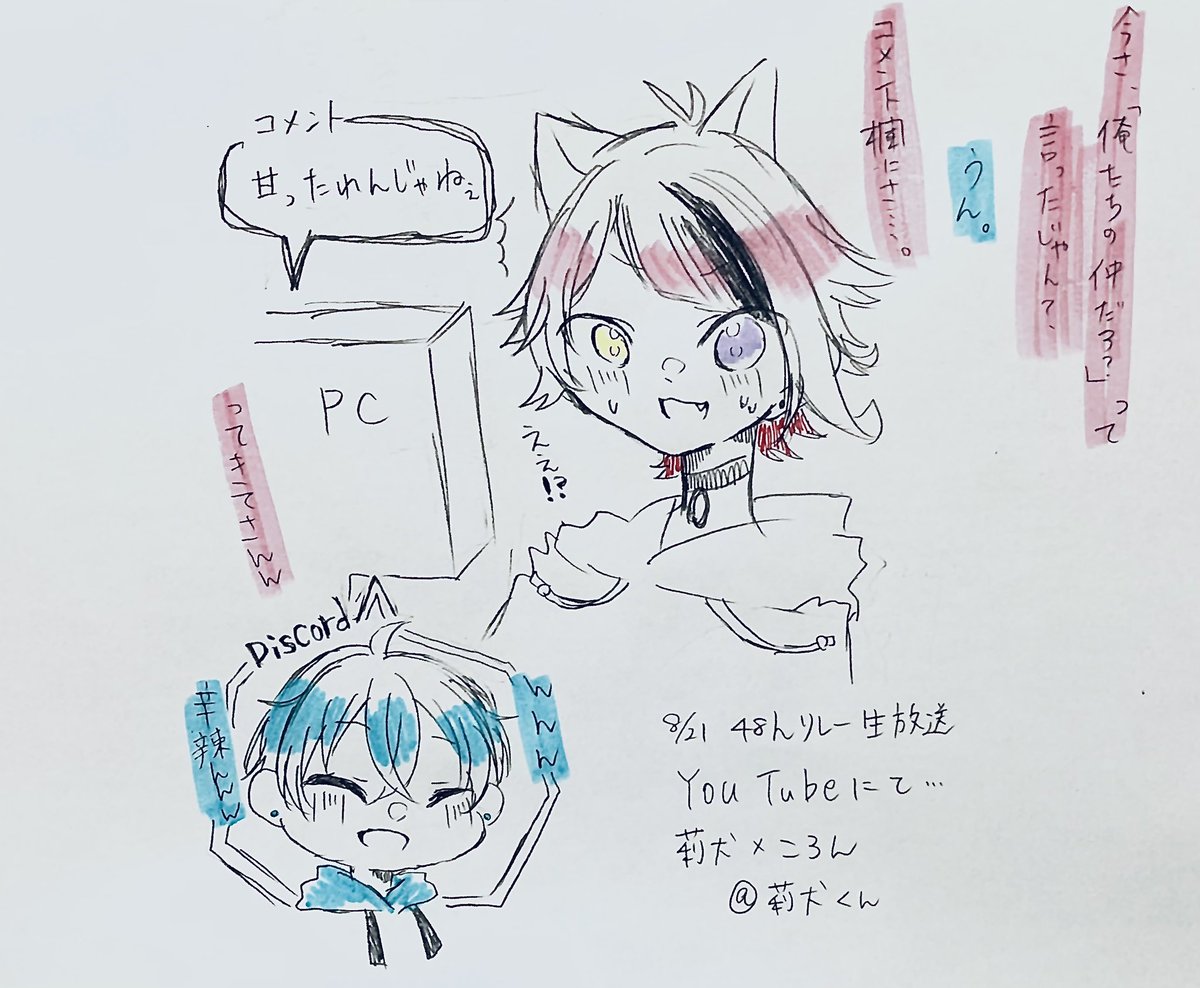 今さ、「俺たちの仲だろ?」って
言ったじゃん?
うん。
コメント欄にさ……。
コメント
甘ったれんじゃねぇ
PC
ってきてさww
ええ!?
Discord
www
辛辣ww
8/21 48hリレー生放送
YouTubeにて…
莉犬×ころん
@莉犬くん